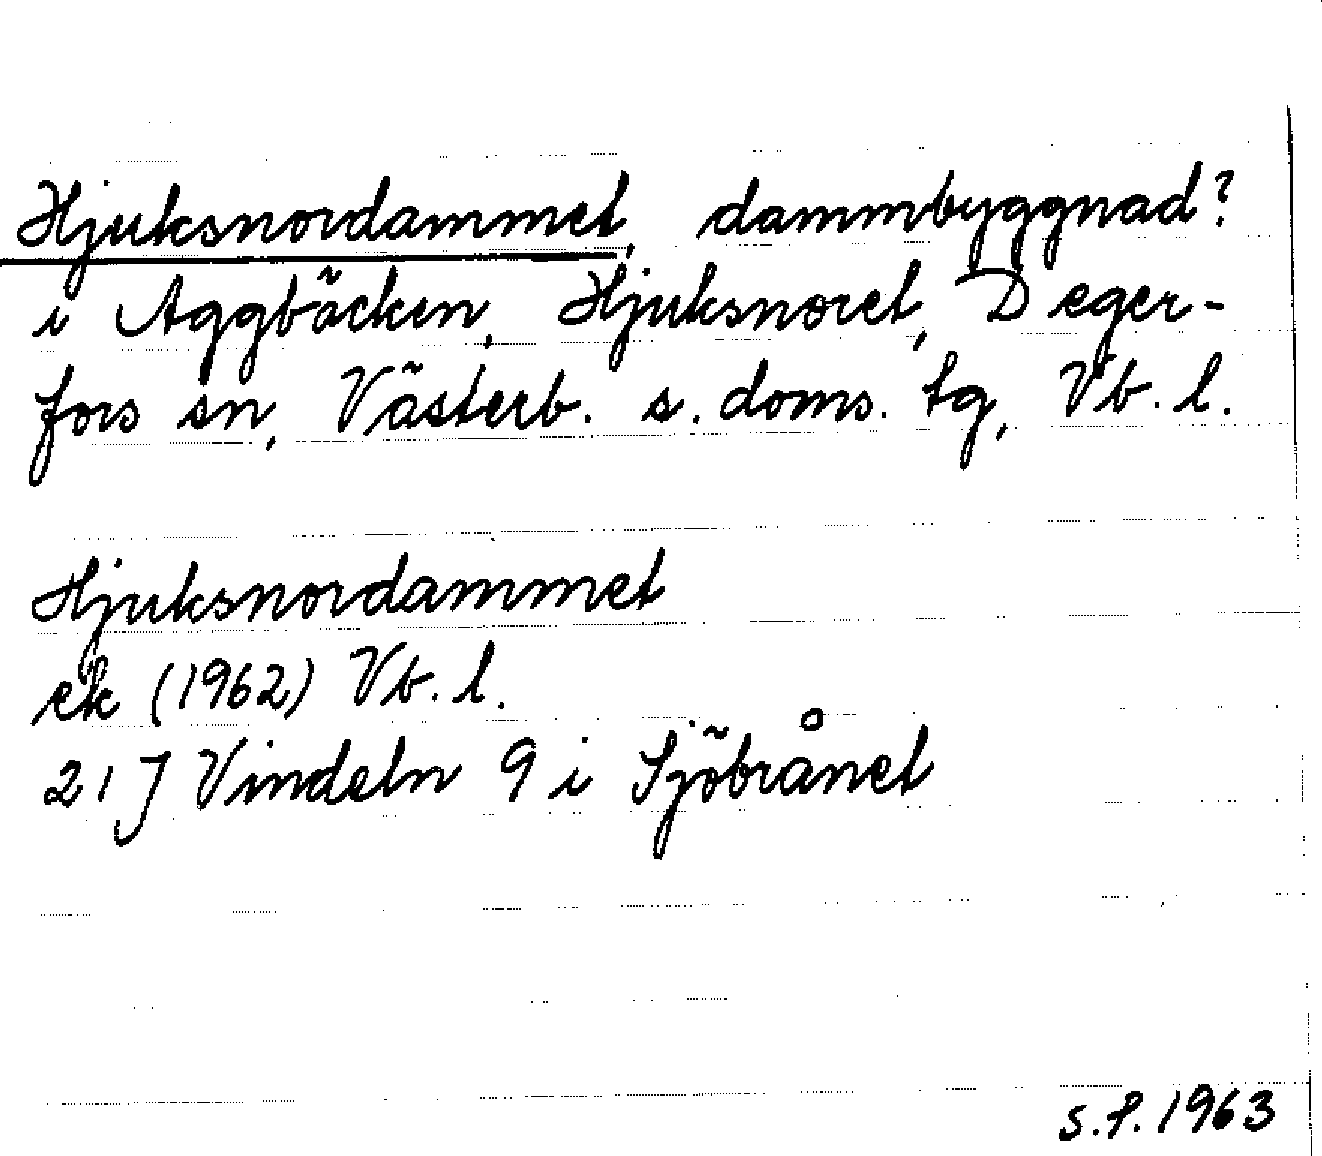 Hjuksnordammet, dammbyggnad?
i Aggbäcken, Hjuksnoret, Deger-
fors sn, Västerb. s. doms. tg, Vb. l.
Hjuksnordammet
ek (1962) Vb. l.
21 J Vindeln 9 i Sjöbrånet
S.P. 1963